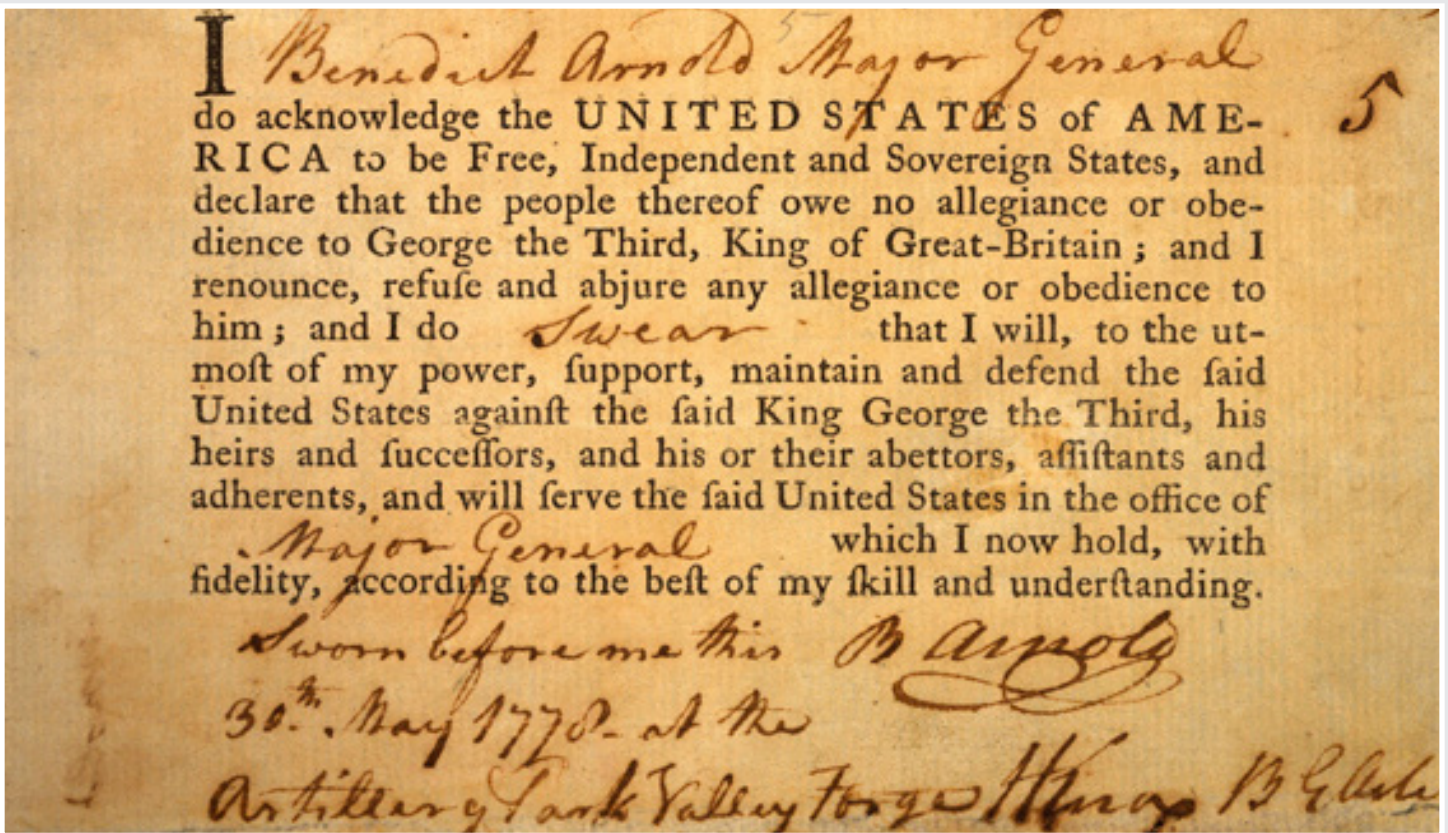 I Benedict Arnold Major General
do acknowledge the UNITED STATES of AME-
RICA to be Free, Independent and Sovereign States, and
declare that the people thereof owe no allegiance or obe-
dience to George the Third, King of Great-Britain ; and I
renounce, refuſe and abjure any allegiance or obedience to
him ; and I do Swear that I will, to the ut-
moſt of my power, ſupport, maintain and defend the ſaid
United States againſt the ſaid King George the Third, his
heirs and ſucceſſors, and his or their abettors, aſſiſtants and
adherents, and will ſerve the ſaid United States in the office of
Major General which I now hold, with
fidelity, according to the beſt of my ſkill and underſtanding.
Sworn before me this B Arnold
30th. May 1778- at the
Artillery Park Valley Forge HKnox B G Arti
5